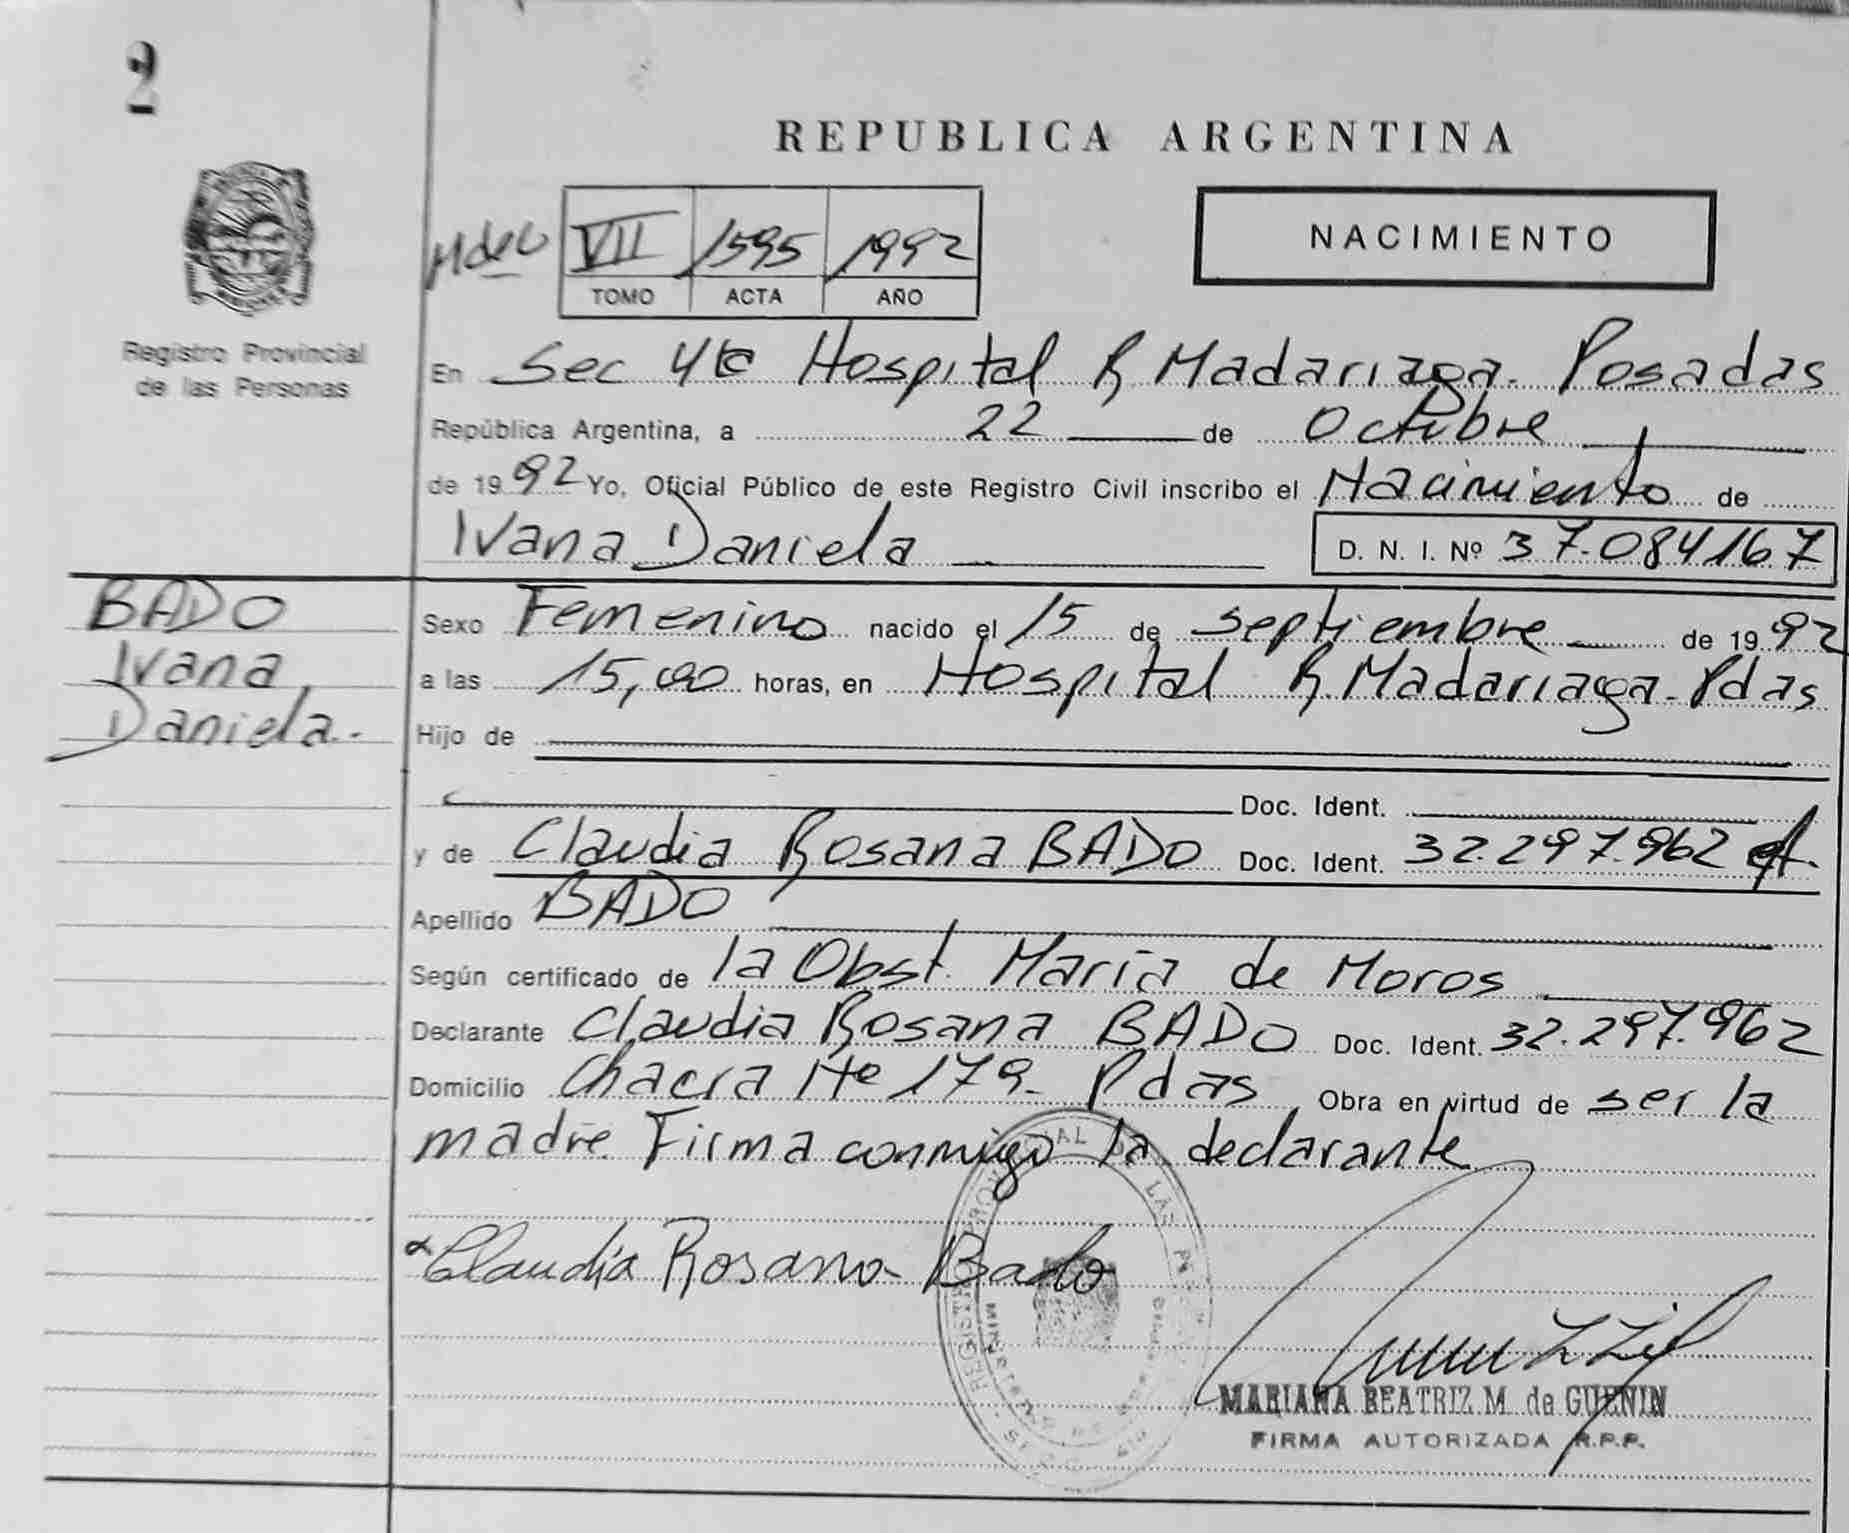 2
REPUBLICA ARGENTINA
VII 1595 1992
TOMO ACTA AÑO
NACIMIENTO
Registro Provincial
de las Personas
En Sec 4ta Hospital R Madariaga. Posadas
República Argentina, a 22 de Octubre
de 1992 Yo, Oficial Público de este Registro Civil inscribo el Nacimiento de
Ivana Daniela D. N. I. Nº 37.084167
BADO
Ivana
Daniela.-
Sexo Femenino nacido el 15 de septiembre de 1992
a las 15,00 horas, en Hospital R. Madariaga - Pdas
Hijo de
Doc. Ident.
y de Claudia Rosana BADO Doc. Ident. 32.297.962
Apellido BADO
Según certificado de la Obst. Maria de Moros
Declarante Claudia Rosana BADO Doc. Ident. 32.297.962
Domicilio Chacra Nº 179- Pdas Obra en virtud de ser la
madre. Firma conmigo la declarante
Claudia Rosana Bado
MARIANA BEATRIZ M. de GUENIN
FIRMA AUTORIZADA R.P.P.